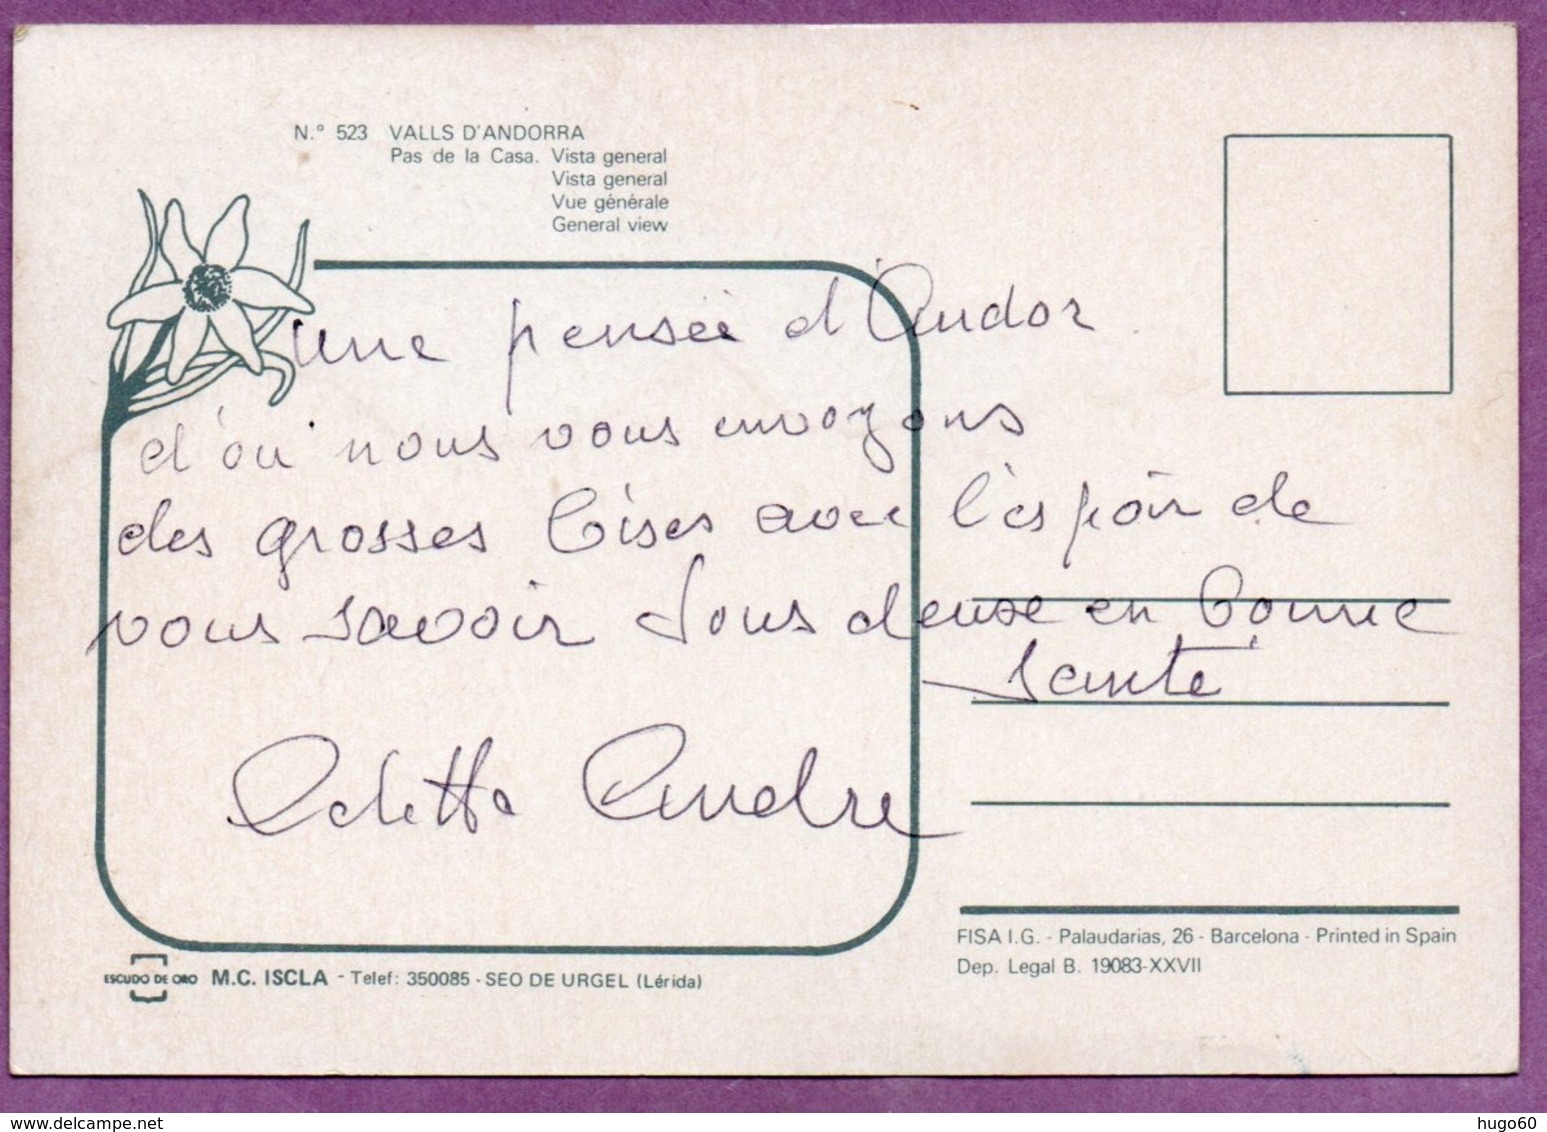 N.º 523 VALLS D'ANDORRA
Pas de la Casa. Vista general
Vista general
Vue générale
General view
Une pensée d'Andor
d'où nous vous envoyons
des grosses bises avec l'espoir de
vous savoir tous deux en bonne
santé
Odette Andre
FISA I.G. - Palaudarias, 26 - Barcelona - Printed in Spain
Dep. Legal B. 19083-XXVII
ESCUDO DE ORO M.C. ISCLA - Telef: 350085 - SEO DE URGEL (Lérida)
hugo60
www.delcampe.net